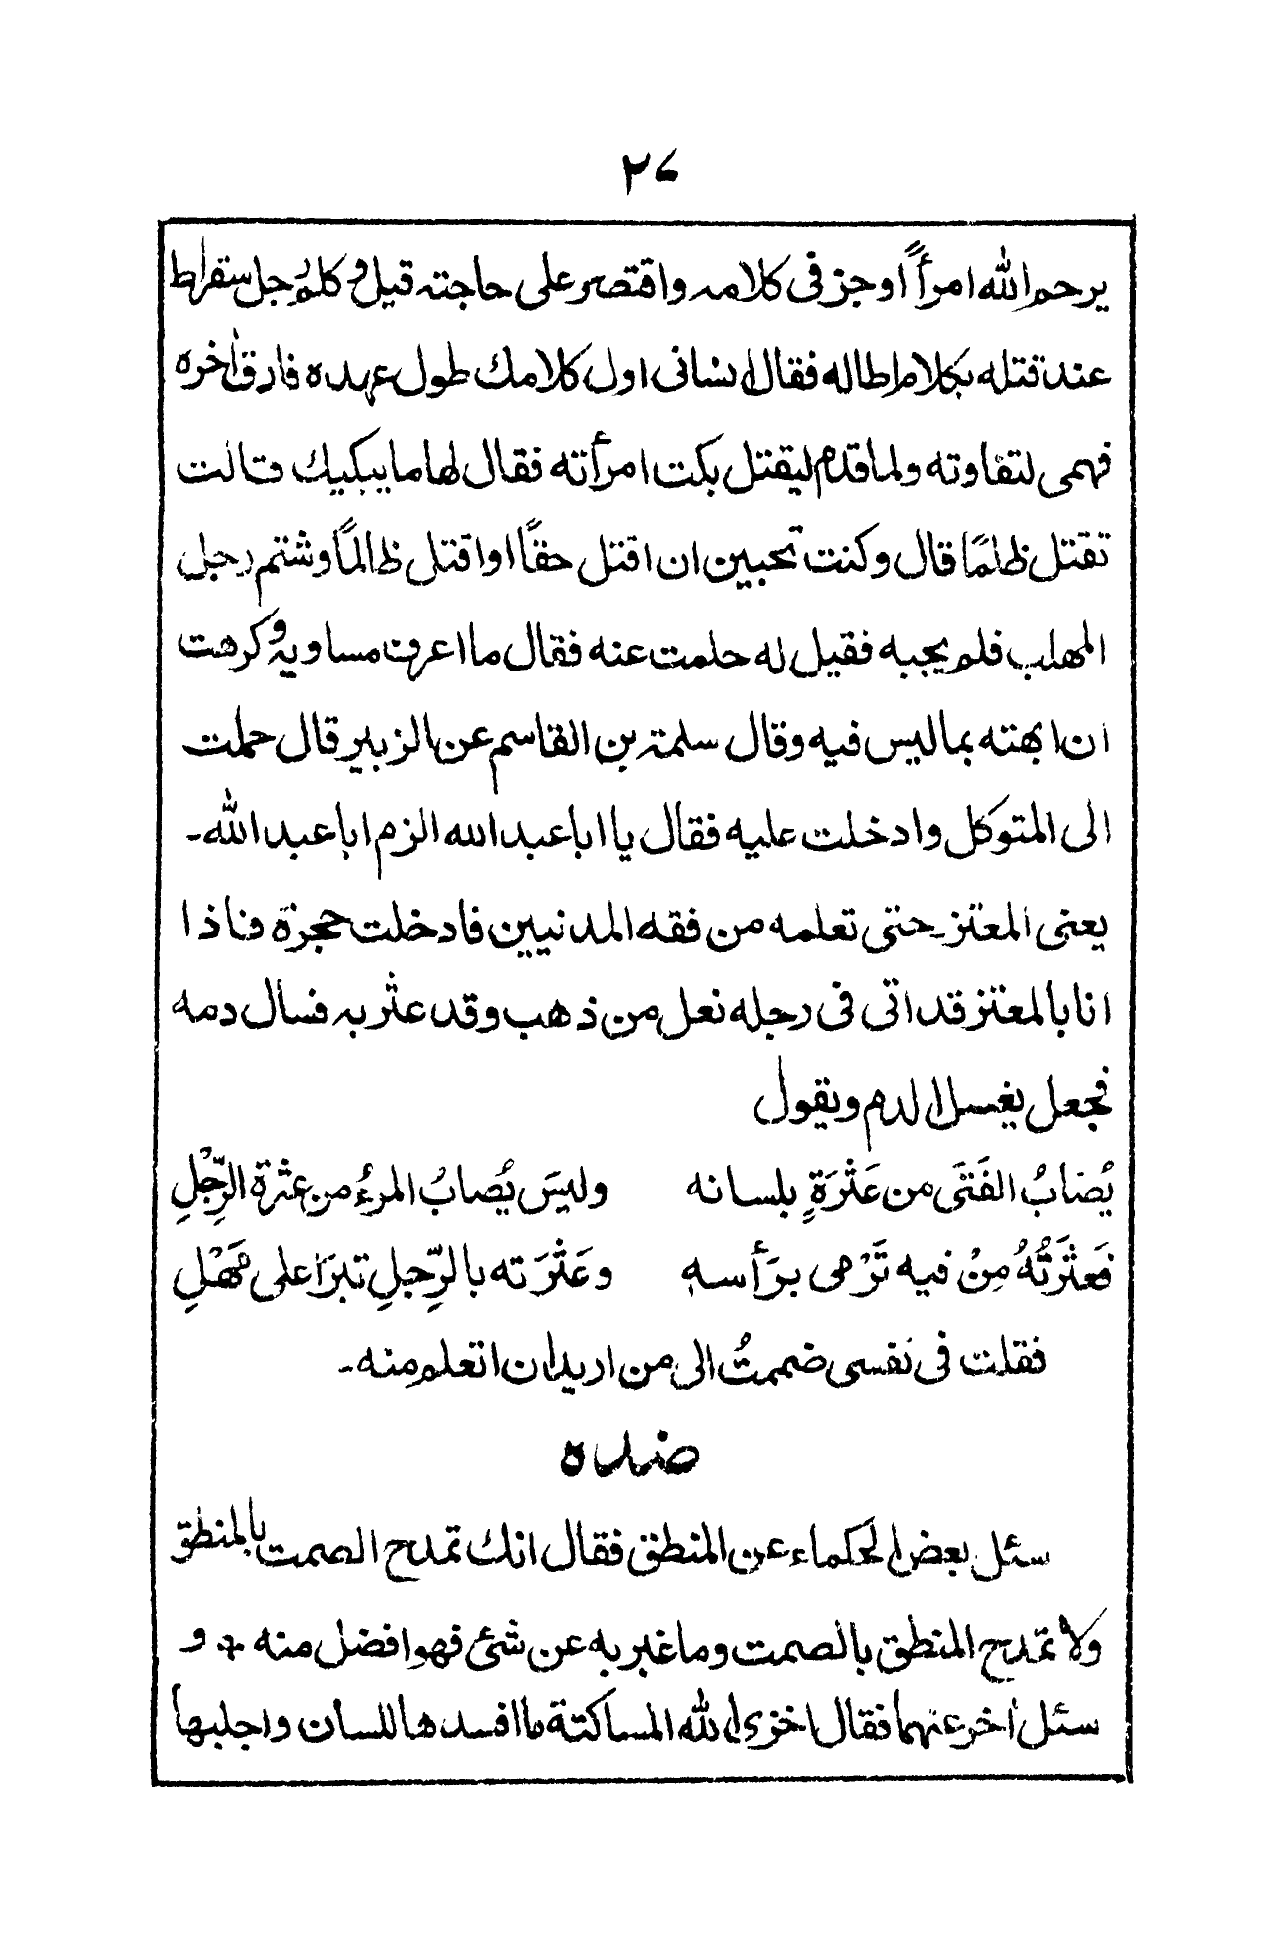 ٢٧
يرحم الله امرأً اوجز فى كلامه واقتصر على حاجته قيل و كلم رجل سقراط
عند قتله بكلام اطاله فقال انسانى اول كلامك طول عهده فارق اٰخره
فهمى لتفاوته ولما قدم ليقتل بكت امرأته فقال لها ما يبكيك قالت
تقتل ظلمًا قال وكنت تحبين ان اقتل حقًا او اقتل ظالمًا وشتم رجل
المهلب فلم يجبه فقيل له حلمت عنه فقال ما اعرف مساويه وكرهت
ان ابهته بما ليس فيه وقال سلمة بن القاسم عن الزبير قال حملت
الى المتوكل وادخلت عليه فقال يا ابا عبد الله الزم ابا عبد الله۔
يعنى المعتز۔حتى تعلمه من فقه المدنيين فادخلت حجرة فاذا
انا بالمعتز قد اتى فى رجله نعل من ذهب وقد عثر به فسال دمه
فجعل يغسل الدم ويقول
يُصَابُ الفَتَى من عَثْرَةٍ بلسانه وليسَ يُصابُ المرءُ من عثرة الرِّجْلِ
فَعثرَتُهُ مِنْ فيه تَرْمى برَأسه وعَثْرَته بالرِّجلِ تبرَا على مَهْلِ
فقلت فى نفسى ضممتُ الى من اريد ان اتعلم منه۔
ضده
سئل بعض الحكماء عن المنطق فقال انك تمدح الصمت بالمنطق
ولا تمدح المنطق بالصمت وما غبر به عن شئ فهو افضل منه * و
سئل اٰخر عنهما فقال اخزى الله المساكتة ما افسدها للسان واجلبها